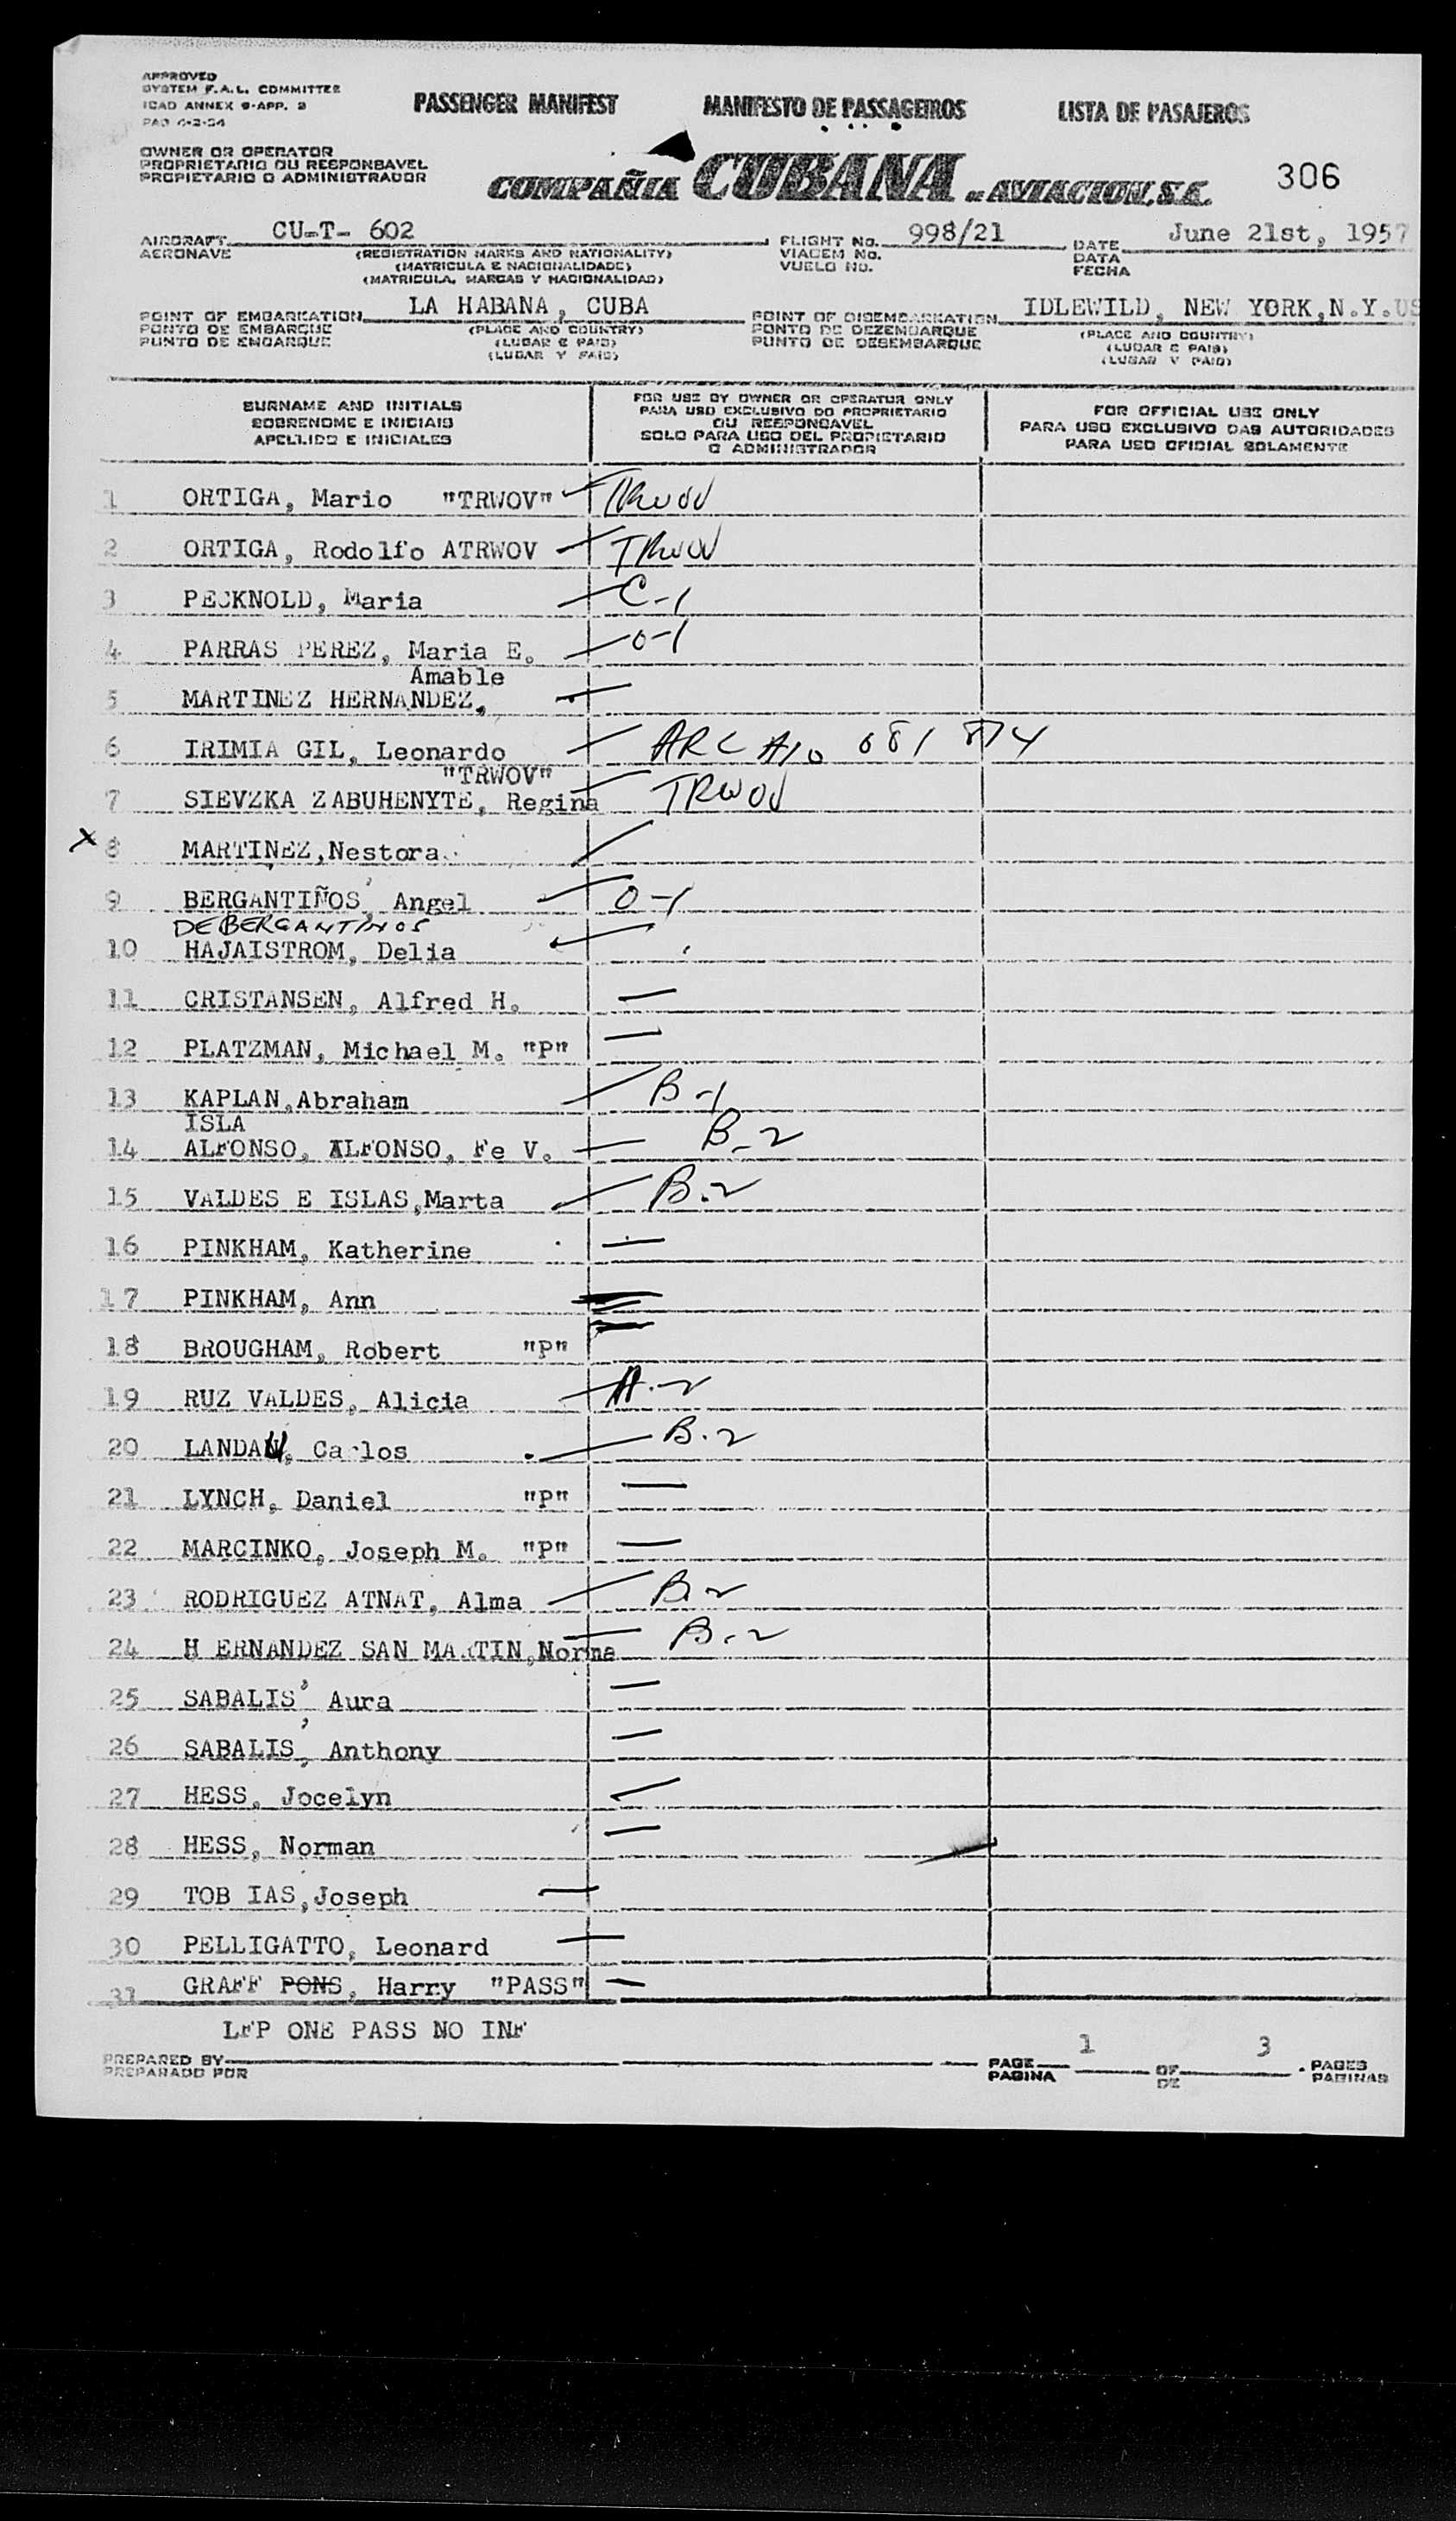 APPROVED
SYSTEM F.A.L. COMMITTEE
ICAO ANNEX 9-APP. 2
PASSENGER MANIFEST MANIFESTO DE PASSAGEIROS LISTA DE PASAJEROS
OWNER OR OPERATOR
PROPRIETARIO OU RESPONSAVEL
PROPIETARIO O ADMINISTRADOR
COMPAÑIA CUBANA DE AVIACION, S.A. 306
AIRCRAFT CU-T- 602 FLIGHT No. 998/21 DATE June 21st, 1957
AERONAVE (REGISTRATION MARKS AND NATIONALITY) VIAGEM No. DATA
(MATRICULA E NACIONALIDADE) VUELO No. FECHA
(MATRICULA, MARCAS Y NACIONALIDAD)
POINT OF EMBARKATION LA HABANA, CUBA POINT OF DISEMBARKATION IDLEWILD, NEW YORK,N.Y.US
PONTO DE EMBARQUE (PLACE AND COUNTRY) PONTO DE DEZEMBARQUE (PLACE AND COUNTRY)
PUNTO DE EMBARQUE (LUGAR E PAIS) PUNTO DE DESEMBARQUE (LUGAR E PAIS)
(LUGAR Y PAIS) (LUGAR Y PAIS)
SURNAME AND INITIALS
SOBRENOME E INICIAIS
APELLIDO E INICIALES
FOR USE BY OWNER OR OPERATOR ONLY
PARA USO EXCLUSIVO DO PROPRIETARIO
OU RESPONSAVEL
SOLO PARA USO DEL PROPIETARIO
O ADMINISTRADOR
FOR OFFICIAL USE ONLY
PARA USO EXCLUSIVO DAS AUTORIDADES
PARA USO OFICIAL SOLAMENTE
1 ORTIGA, Mario "TRWOV" TRWOV
2 ORTIGA, Rodolfo ATRWOV TRWOV
3 PECKNOLD, Maria C-1
4 PARRAS PEREZ, Maria E. O-1
Amable
5 MARTINEZ HERNANDEZ,
6 IRIMIA GIL, Leonardo ARC A10 681 874
"TRWOV"
7 SIEVZKA ZABUHENYTE, Regina TRWOV
X 8 MARTINEZ,Nestora
9 BERGANTIÑOS, Angel O-1
DE BERGANTINOS
10 HAJAISTROM, Delia
11 CRISTANSEN, Alfred H.
12 PLATZMAN, Michael M. "P"
13 KAPLAN,Abraham B-1
ISLA
14 ALFONSO, ALFONSO, Fe V. B-2
15 VALDES E ISLAS,Marta B-2
16 PINKHAM, Katherine
17 PINKHAM, Ann
18 BROUGHAM, Robert "P"
19 RUZ VALDES, Alicia A-2
20 LANDAU, Carlos B-2
21 LYNCH, Daniel "P"
22 MARCINKO, Joseph M. "P"
23 RODRIGUEZ ATNAT, Alma B-2
24 H ERNANDEZ SAN MARTIN,Norma B-2
25 SABALIS, Aura
26 SABALIS, Anthony
27 HESS, Jocelyn
28 HESS, Norman
29 TOB IAS,Joseph
30 PELLIGATTO, Leonard
31 GRAFF PONS, Harry "PASS"
LFP ONE PASS NO INF
PREPARED BY PAGE 1 OF 3 PAGES
PREPARADO POR PAGINA DE PAGINAS